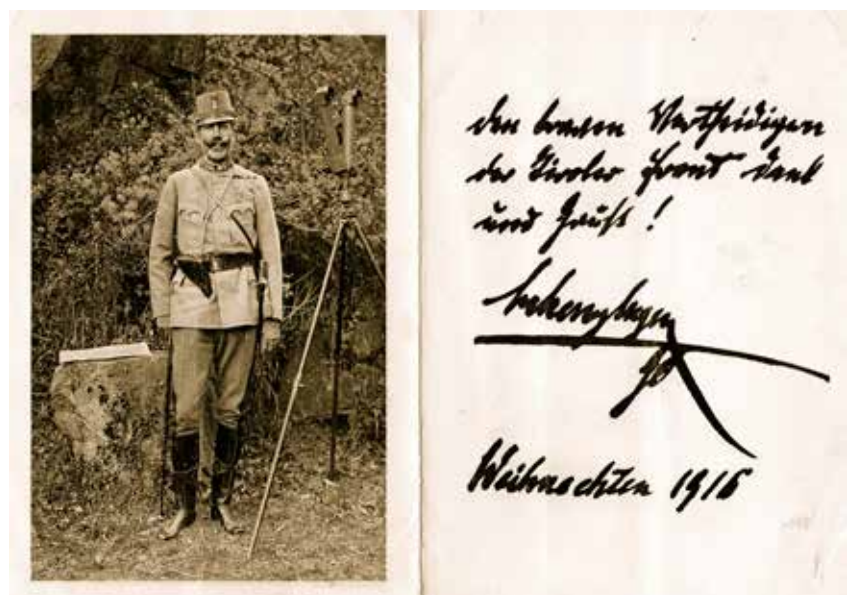 den braven Vertheidigern
der Tiroler Front Dank
und Gruß!
Weihnachten 1916